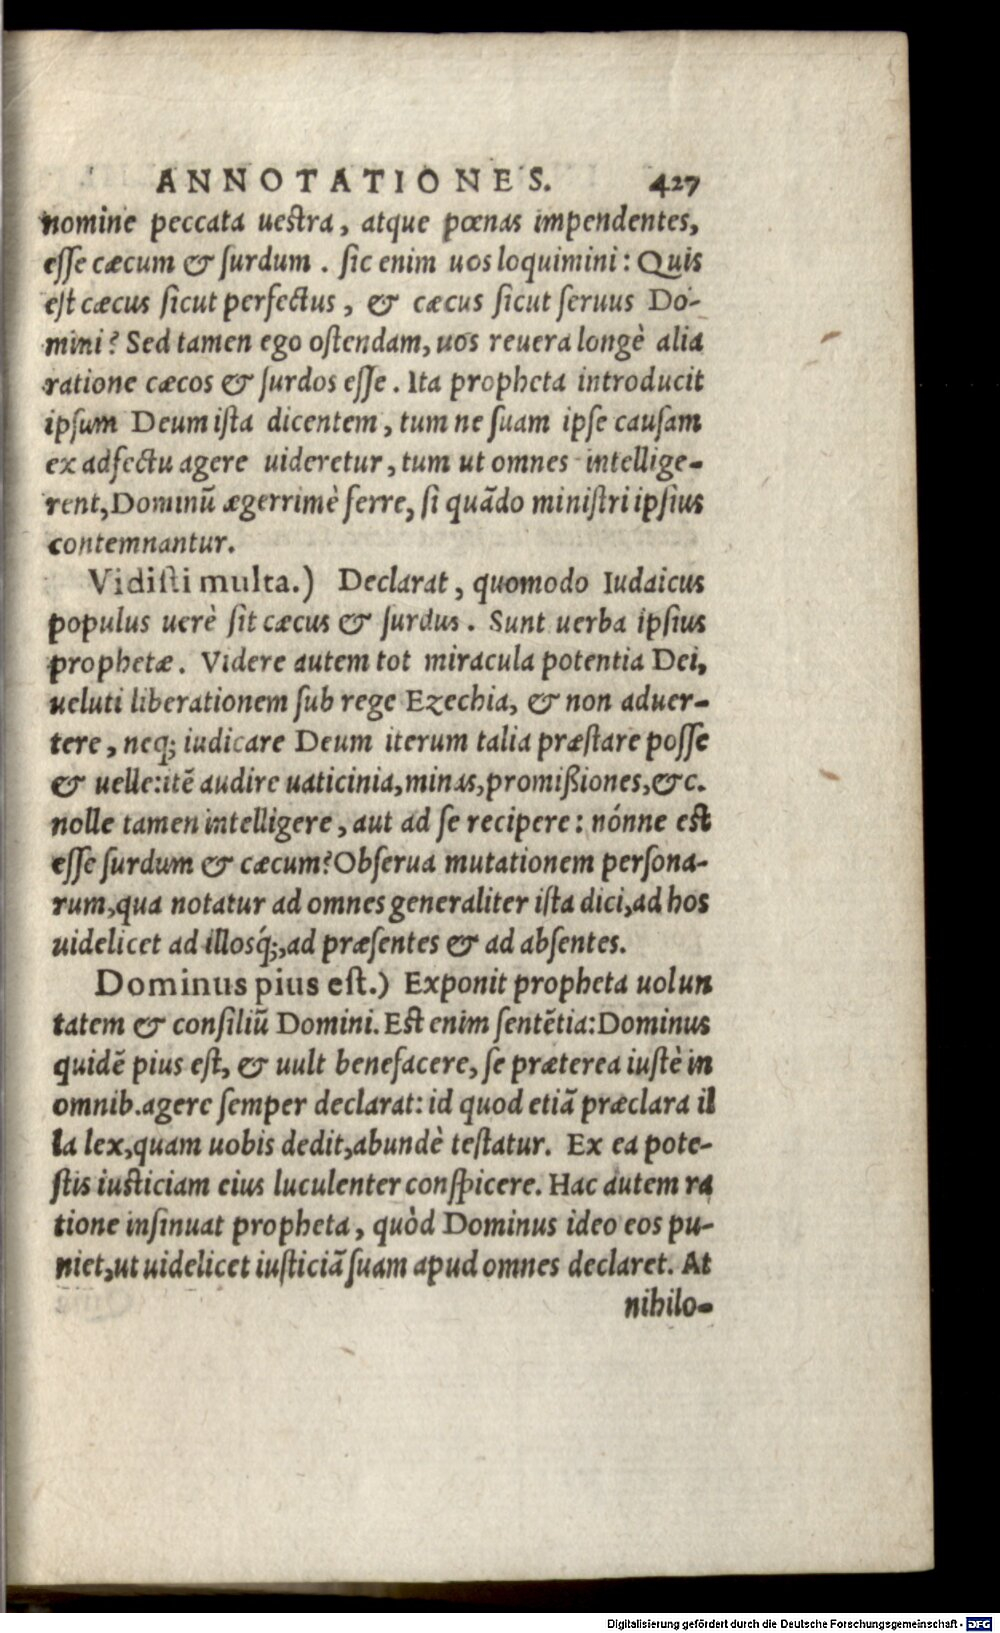 ANNOTATIONES. 427
nomine peccata uestra, atque pœnas impendentes,
esse cæcum & surdum. sic enim uos loquimini: Quis
est cæcus sicut perfectus, & cæcus sicut seruus Do-
mini? Sed tamen ego ostendam, uos reuera longè alia
ratione cæcos & surdos esse. Ita propheta introducit
ipsum Deum ista dicentem, tum ne suam ipse causam
ex adfectu agere uideretur, tum ut omnes intellige-
rent, Dominũ ægerrimè ferre, si quãdo ministri ipsius
contemnantur.
Vidisti multa.) Declarat, quomodo Iudaicus
populus uerè sit cæcus & surdus. Sunt uerba ipsius
prophetæ. Videre autem tot miracula potentia Dei,
ueluti liberationem sub rege Ezechia, & non aduer-
tere, neq; iudicare Deum iterum talia præstare posse
& uelle: itẽ audire uaticinia, minas, promißiones, &c.
nolle tamen intelligere, aut ad se recipere: nónne est
esse surdum & cæcum? Obserua mutationem persona-
rum, qua notatur ad omnes generaliter ista dici, ad hos
uidelicet ad illosq́;, ad præsentes & ad absentes.
Dominus pius est.) Exponit propheta uolun
tatem & consiliũ Domini. Est enim sentẽtia: Dominus
quidẽ pius est, & uult benefacere, se præterea iustè in
omnib. agere semper declarat: id quod etiã præclara il
la lex, quam uobis dedit, abundè testatur. Ex ea pote-
stis iusticiam eius luculenter conspicere. Hac autem ra
tione insinuat propheta, quòd Dominus ideo eos pu-
niet, ut uidelicet iusticiã suam apud omnes declaret. At
nihilo-
Digitalisierung gefördert durch die Deutsche Forschungsgemeinschaft - DFG